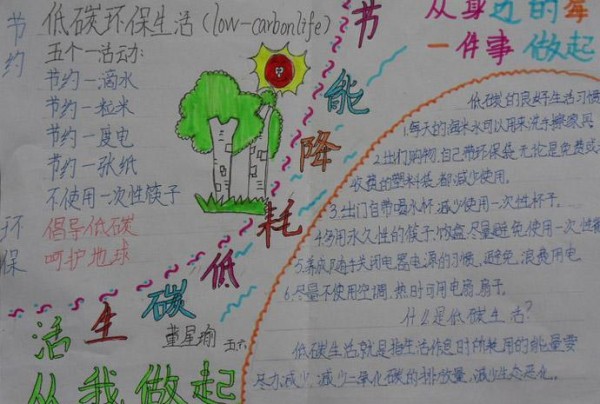 节约
环保
低碳环保生活(low-carbonlife)
五个一活动:
节约一滴水
节约一粒米
节约一度电
节约一张纸
不使用一次性筷子
倡导低碳
呵护地球
节能降耗
低碳生活
从我做起
五六
从身边的每
一件事做起
低碳的良好生活习惯
1.每天的淘米水可以用来洗手擦家具
2.出门购物,自己带环保袋,无论是免费或
收费的塑料袋,都减少使用。
3.出门自带喝水杯,减少使用一次性杯子。
4.多用永久性的筷子、饭盒,尽量避免使用一次性餐
5.养成随手关闭电器电源的习惯,避免浪费用电
6.尽量不使用空调,热时可用电扇扇子。
什么是低碳生活?
低碳生活就是指生活作息时所耗用的能量要
尽力减少,减少二氧化碳的排放量,减少生态恶化。